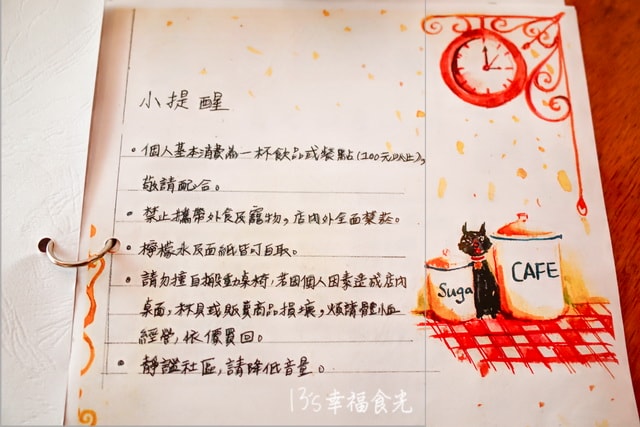 小提醒
• 個人基本消費為一杯飲品或餐點(100元以上),
敬請配合。
• 禁止攜帶外食及寵物,店內外全面禁菸。
• 檸檬水及面紙皆可自取。
• 請勿擅自搬動桌椅,若因個人因素造成店內
桌面,杯具或販賣商品損壞,煩請體恤
經營,依價買回。
• 靜謐社區,請降低音量。
Suga
CAFE
13's幸福食光